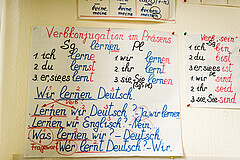 keine keine
meine meine
Verbkonjugation im Präsens
Sg. lernen Pl
1. ich lerne 1. wir lernen
2. du lernst 2. ihr lernt
3. er sie es lernt 3. sie, Sie lernen
Wir lernen Deutsch.
Verb
Lernen wir Deutsch? Ja, wir lernen
Lernen wir Englisch? - Nein,
Was lernen wir? - Deutsch.
Fragewort Wer lernt Deutsch? - Wir.
Verb "sein"
1. ich bin
2. du bist
3. er sie es ist
1. wir sind
2. ihr seid
3. sie Sie sind